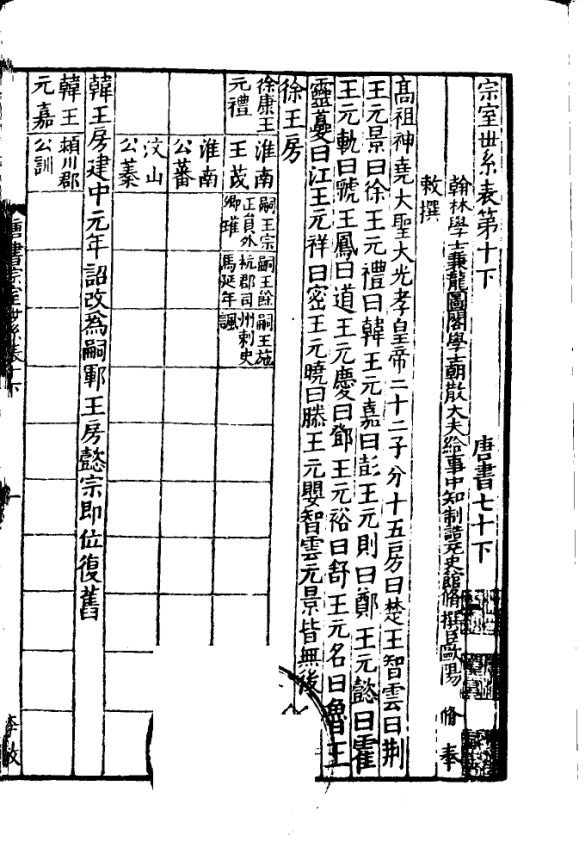 宗室世系表第十下　唐書七十下
翰林學士兼龍圖閣學士朝散大夫給事中知制誥充史館脩撰臣歐陽　脩　奉
敕撰
高祖神堯大聖大光孝皇帝二十二子分十五房曰楚王智雲曰荆
王元景曰徐王元禮曰韓王元嘉曰彭王元則曰鄭王元懿曰霍
王元軌曰虢王鳳曰道王元慶曰鄧王元裕曰舒王元名曰魯王
靈夔曰江王元祥曰密王元曉曰滕王元嬰智雲元景皆無後
徐王房
徐康王元禮
淮南王茂
嗣王宗正員外卿璀
嗣王餘杭郡司馬延年
嗣王施州刺史諷
淮南公蕃
汶山公蓁
韓王房建中元年詔改為嗣鄆王房懿宗即位復舊
韓王元嘉
潁川郡公訓
唐書宗室世系表十下
一